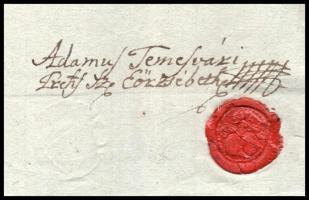 Adamus Temesvári
Prefs Sz. Eőrzsébeth